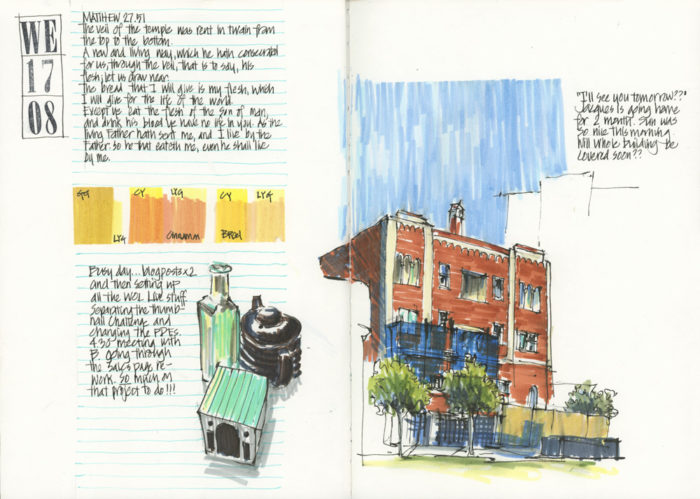 WE
17
08
MATTHEW 27.51
The veil of the temple was rent in twain from
the top to the bottom.
A new and living way, which he hath consecrated
for us, through the veil, that is to say, his
flesh; let us draw near.
The bread that I will give is my flesh, which
I will give for the life of the world.
Except ye eat the flesh of the son of man,
and drink his blood ye have no life in you. As the
living Father hath sent me, and I live by the
Father: so he that eateth me, even he shall live
by me.
CY
LYG
CY
LYG
LYG
Cinnamon
Busy day... blogposts x 2
and then setting up
all the WOL Live stuff.
Separating the thumb-
nail Challenge and
changing the PDFs.
4.30 meeting with
B. going through
the sales page re-
work. So much on
that project to do!!!
"I'll see you tomorrow??"
Jacques is going home
for 2 month. Sun was
so nice this morning.
Will whole building be
covered soon??